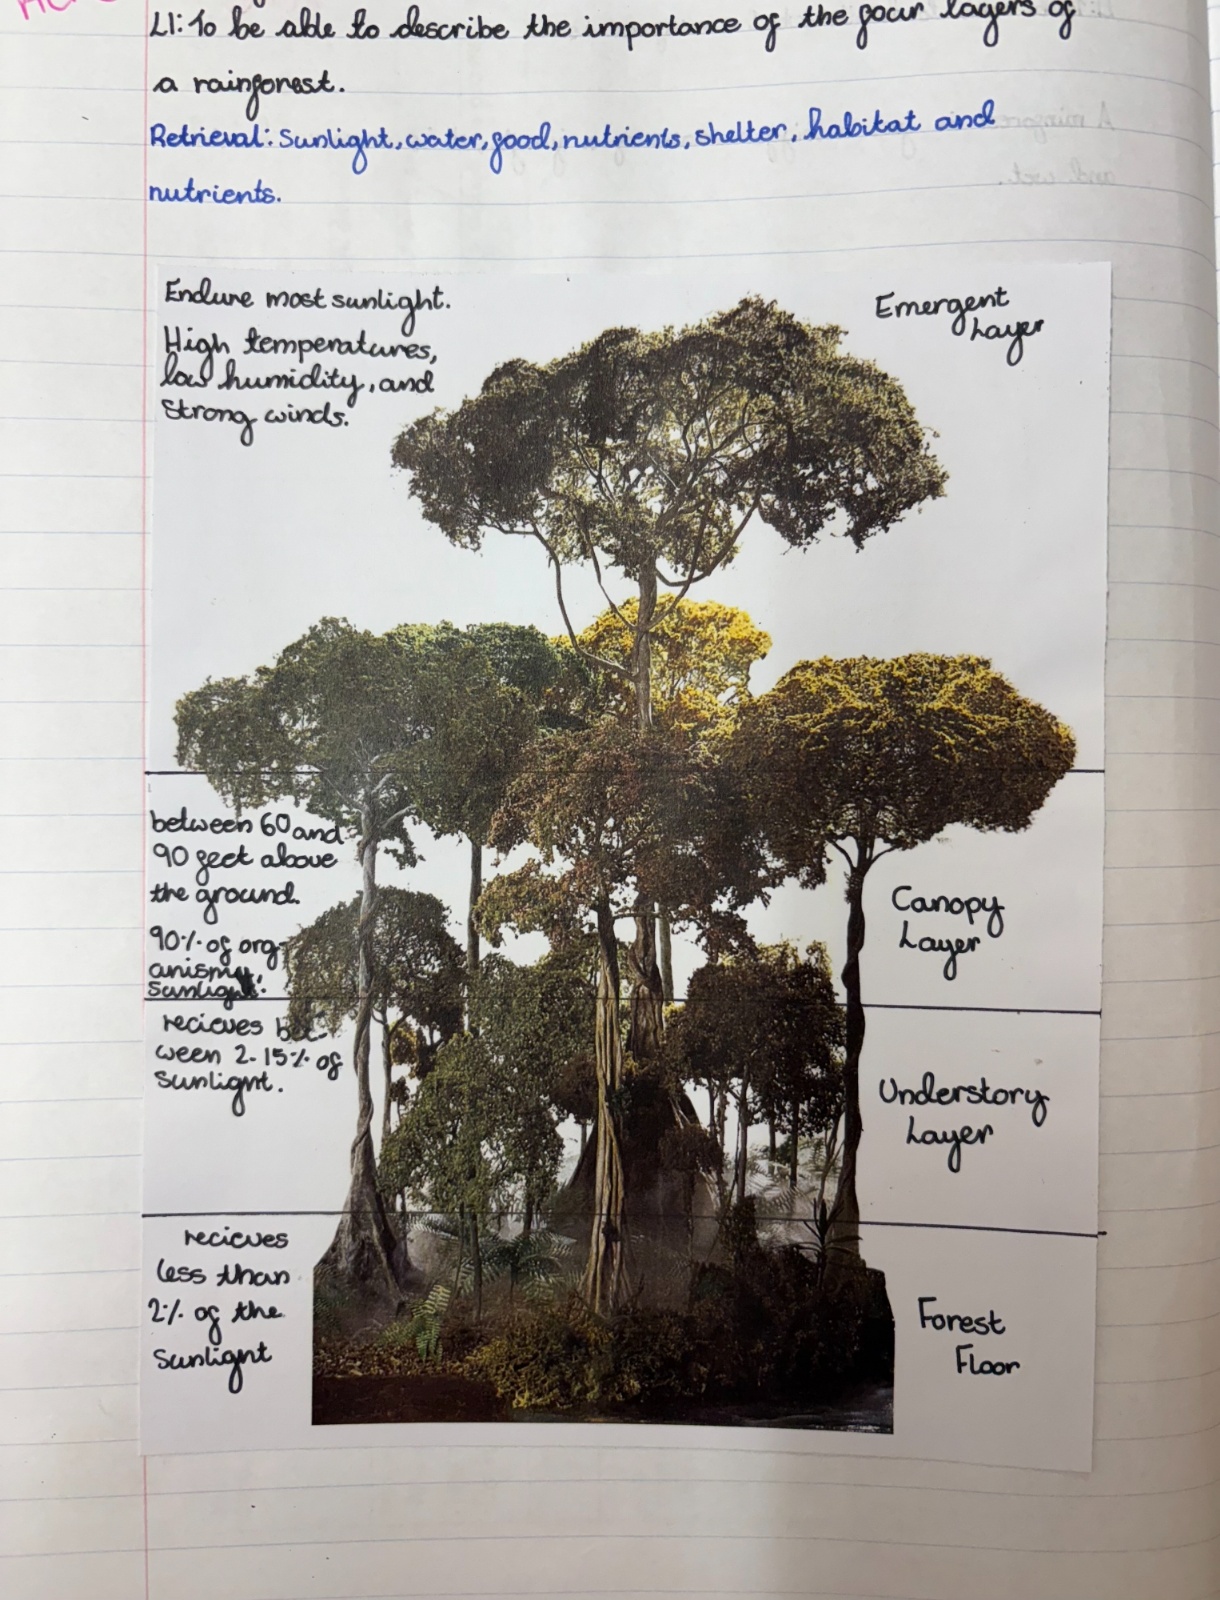 LI: To be able to describe the importance of the four layers of
a rainforest.
Retrieval: Sunlight, water, food, nutrients, shelter, habitat and
nutrients.
Endure most sunlight.
High temperatures,
low humidity, and
Strong winds.
Emergent
Layer
between 60 and
90 feet above
the ground.
90% of org-
anisms,
sunlight.
Canopy
Layer
recieves bet
ween 2-15% of
sunlight.
Understory
Layer
recieves
less than
2% of the
sunlight
Forest
Floor